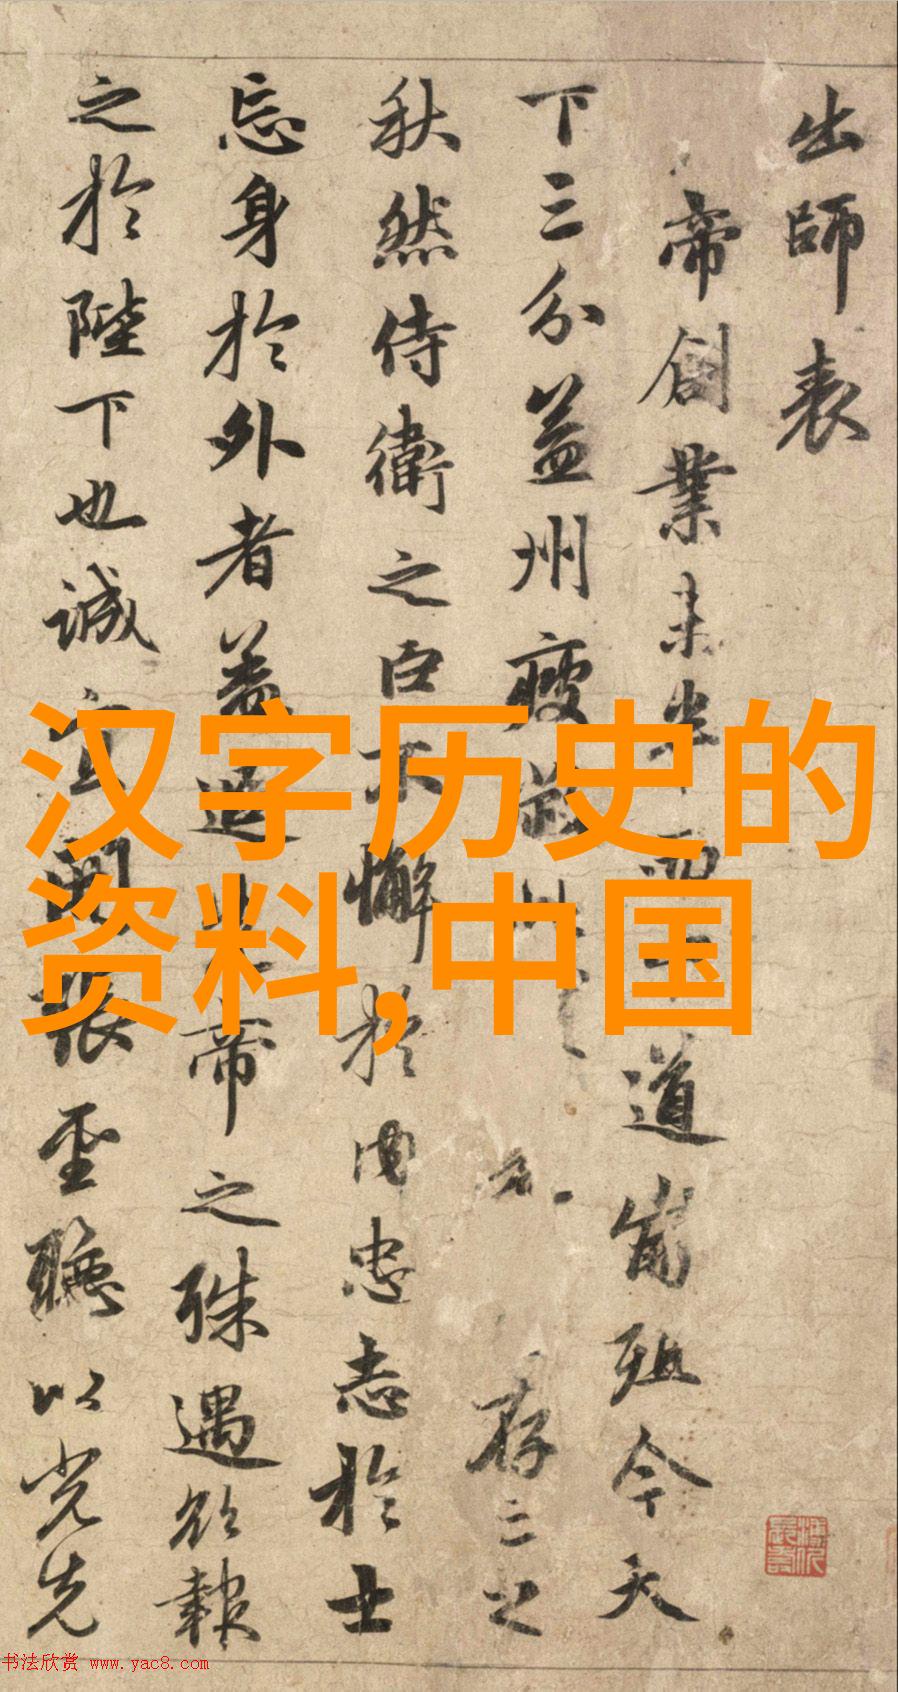 出師表
帝創業未半道崩殂今天
下三分益州疲存亡之
秋然侍衛之臣不懈於内忠志於士
忘身於外者蓋追先帝之殊遇欲報
之於陛下也誠宜開張聖聽以光先
汉字历史的
资料,中国
书法欣赏 www.yac8.com